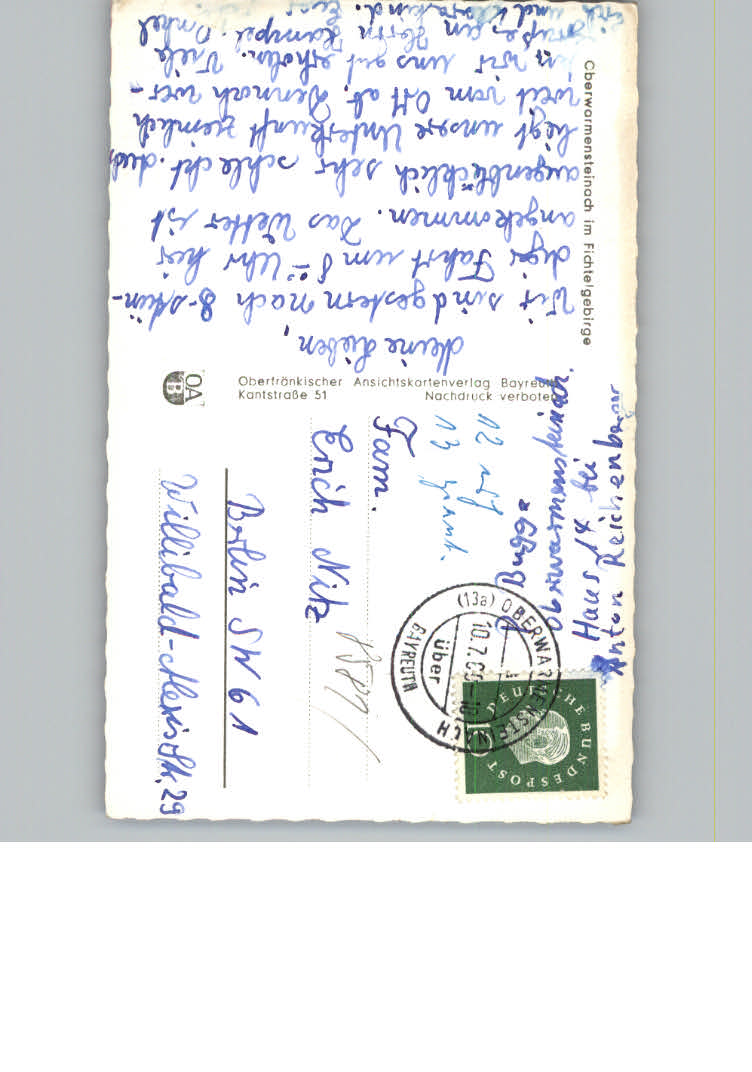 Oberwarmensteinach im Fichtelgebirge
Meine Lieben,
Wir sind gestern nach 8-stün-
diger Fahrt um 8 Uhr hier
angekommen. Das Wetter ist
augenblicklich sehr schlecht. Auch
liegt unsere Unterkunft ziemlich
weit vom Ort ab. Dennoch wer-
den wir uns gut erholen. Viele
Grüße an Herrn Kampel. Onkel
Erich und
Oberfränkischer Ansichtskartenverlag Bayreuth
Kantstraße 51 Nachdruck verboten
OA
B
Anton Reichenberger
Haus 14 bei
Oberwarmensteinach
(13a) OBERWARMENSTEINACH
über
BAYREUTH
10.7.60-10
DEUTSCHE BUNDESPOST
10
12
13
Fam.
Erich Nitz
Berlin SW 61
Willibald-Alexis Str. 29